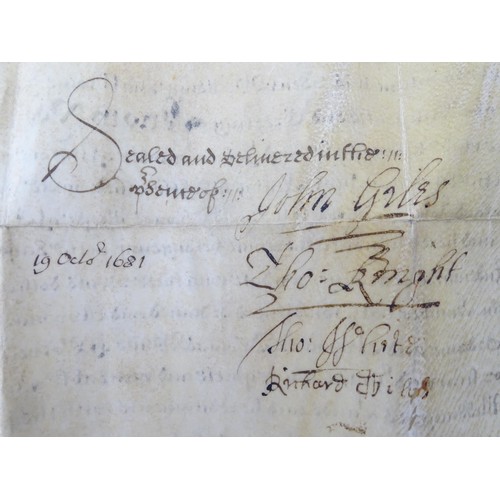 Sealed and Delivered in the
p̱sence of
John Geles
19 Octoʳ 1681
Tho: Knight
Tho: White
Richard